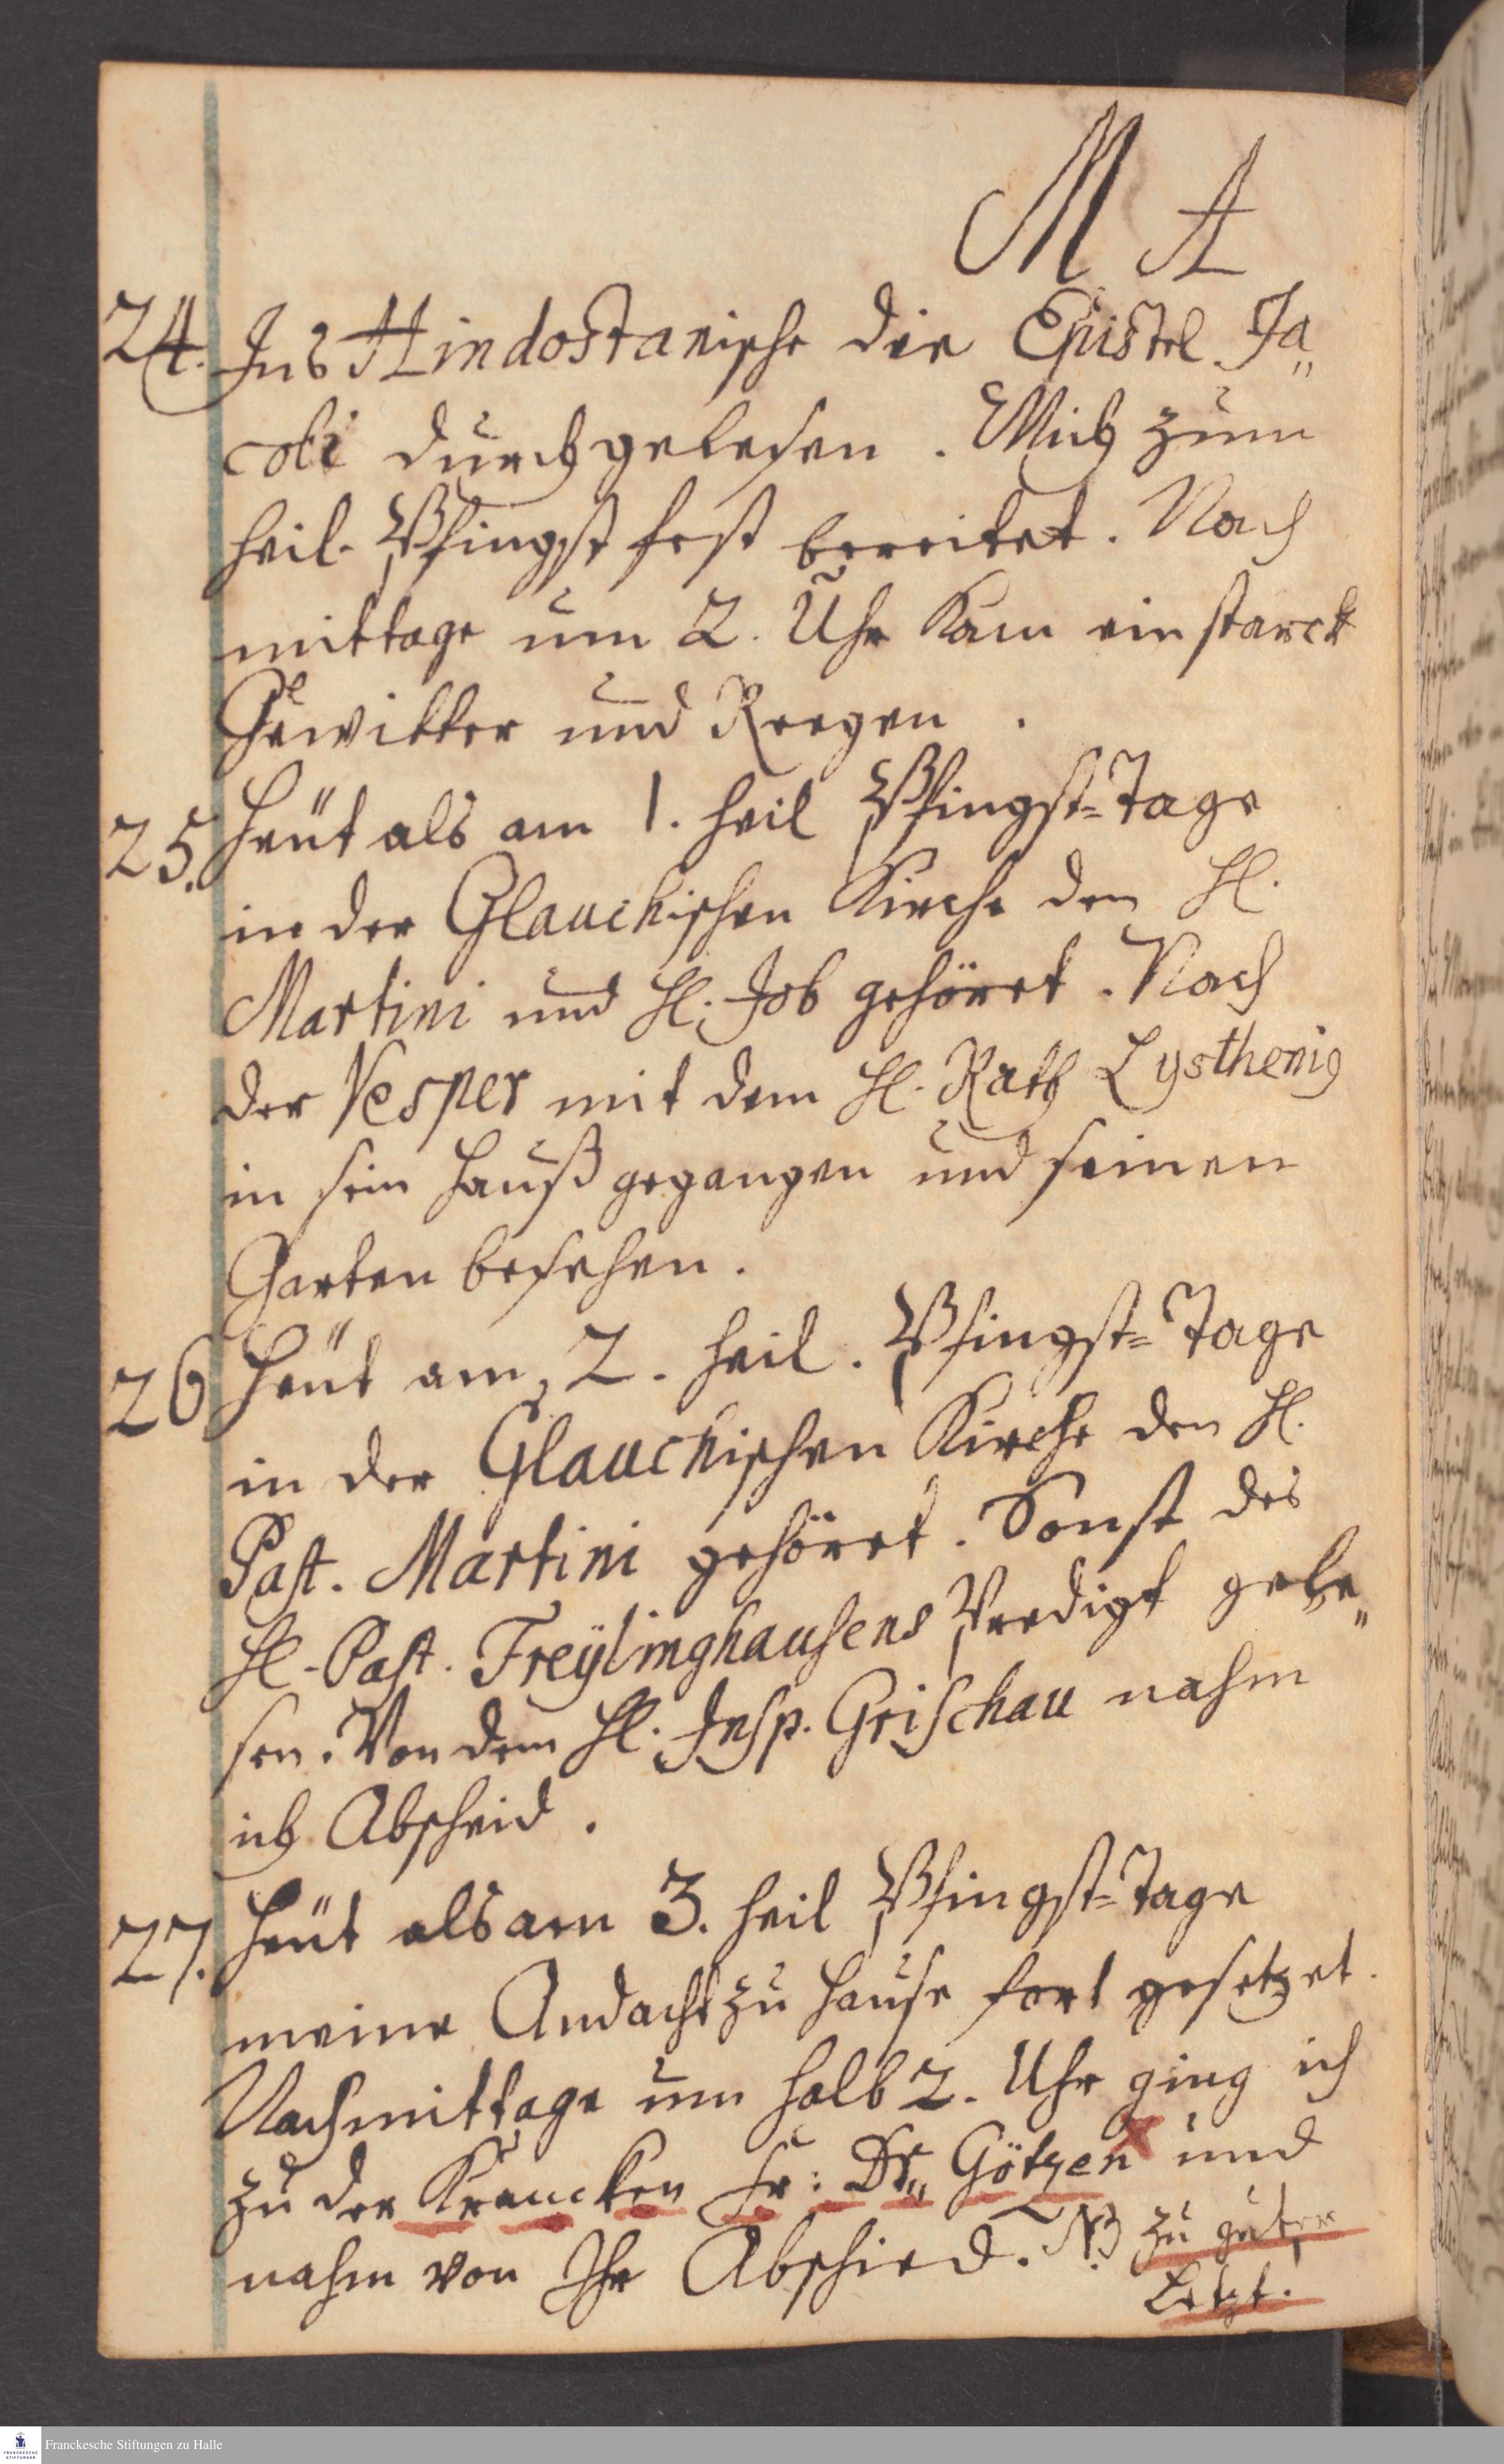 M A
24. Ins Hindostanische die Epistel Ja„
cobi durchgelesen. Mich zum
heil. Pfingstfest bereitet. Nach
mittage um 2. Uhr kam ein starck
Gewitter und Reegen.
25. Heüt als am 1. heil Pfingst=Tage
in der Glauchischen Kirche den H.
Martini und H. Job gehöret. Nach
der Vesper mit dem H. Rath Lysthenig
in sein Hauß gegangen und seinen
Garten besehen.
26 Heüt am 2. heil. Pfingst=Tage
in der Glauchischen Kirche den H.
Past. Martini gehöret. Sonst des
H. Past. Freÿlinghausens Predigt gele„
sen. Von dem H. Insp. Grischau nahm
ich Abscheid.
27. Heüt als am 3. heil Pfingst=Tage
meine Andacht zu Hause fort gesetzet.
Nachmittage um halb 2. Uhr ging ich
zu der Krancken Fr: Dr„ Götzen und
nahm von Ihr Abschied. NB zu guter
Letzt.
Franckesche Stiftungen zu Halle